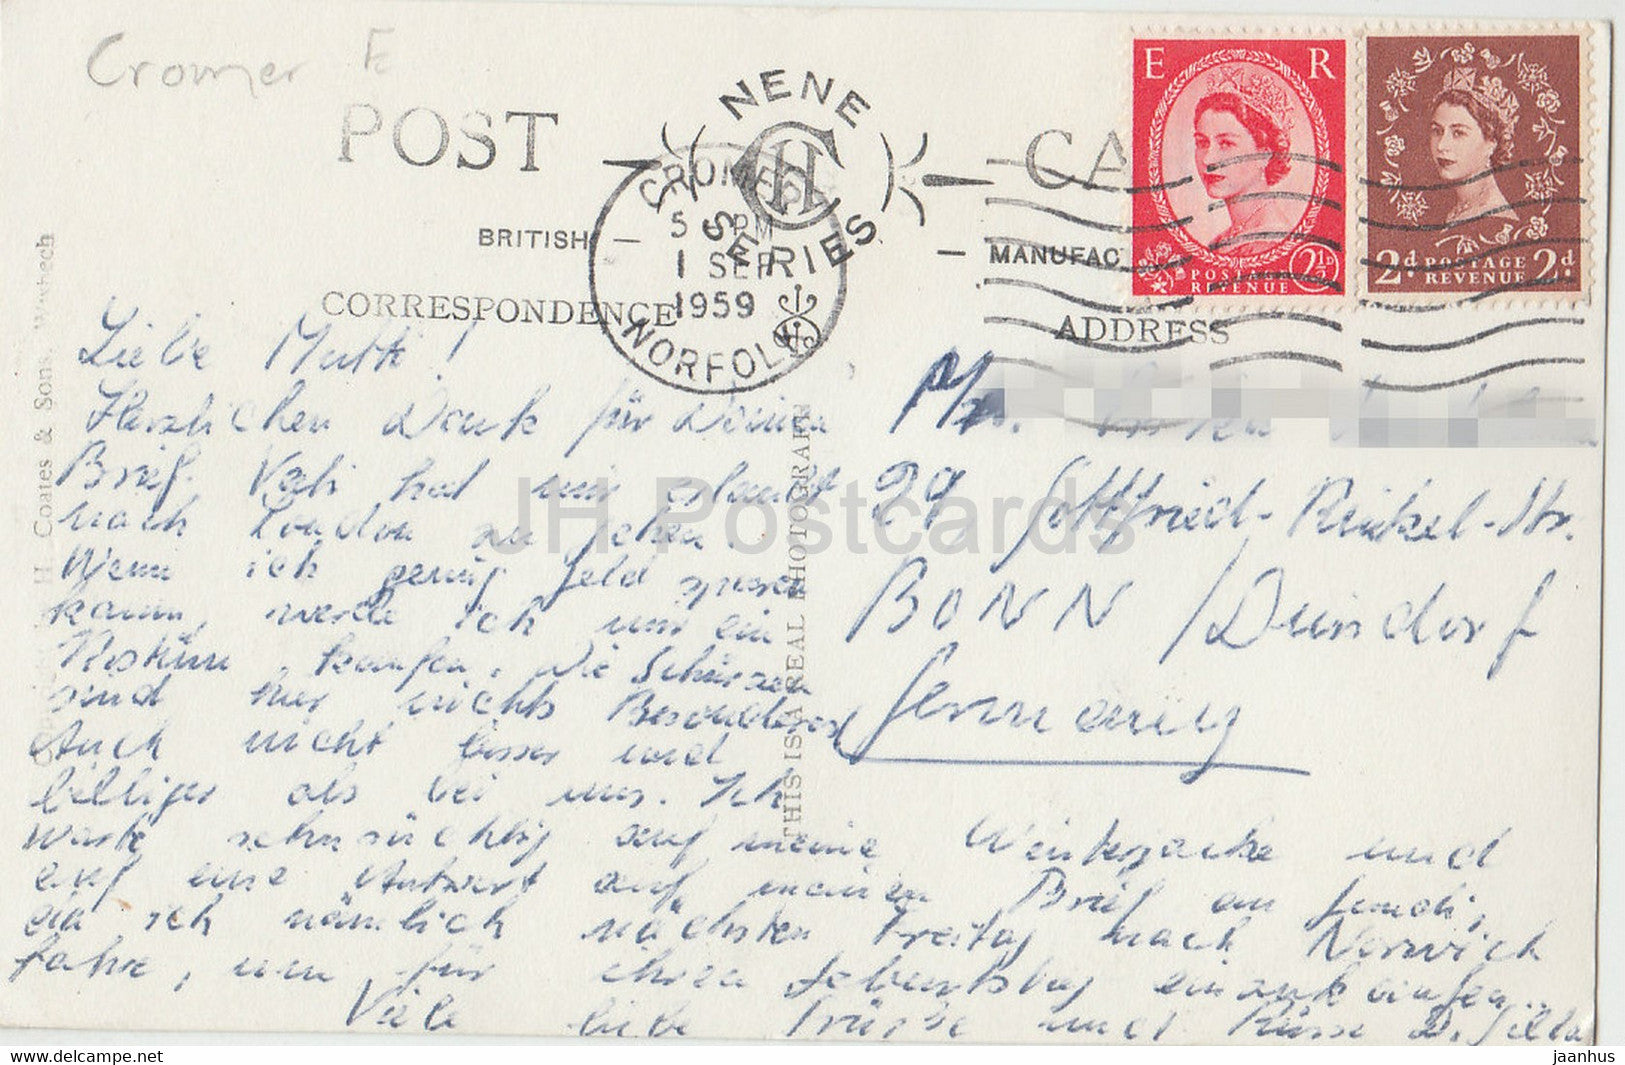 Cromer E
POST CA
NENE
CH
SERIES
CROMER
5 PM
1 SEP
1959
NORFOLK
BRITISH MANUFAC
CORRESPONDENCE ADDRESS
E R
POSTAGE
REVENUE
2½D
2d POSTAGE 2d
REVENUE
H. Coates & Sons, Wisbech
THIS IS A REAL PHOTOGRAPH
Liebe Mutti!
Herzlichen Dank für Deinen
Brief. Vati hat mir erlaubt
nach London zu gehen.
Wenn ich genug Geld sparen
kann, werde ich mir ein
Kostüm kaufen. Die Schürzen
sind hier nichts Besonderes
Auch nicht besser und
billiger als bei uns. Ich
warte sehnsüchtig auf meine Winterjacke und
auf eine Antwort auf meinen Brief an
da ich nämlich nächsten Freitag nach Norwich
fahre, um für ihren Geburtstag einzukaufen.
Viele liebe Grüße und Küsse
29, Gottfried-Kinkel-Str.
BONN /Duisdorf
Germany
JH Postcards
www.delcampe.net jaanhus